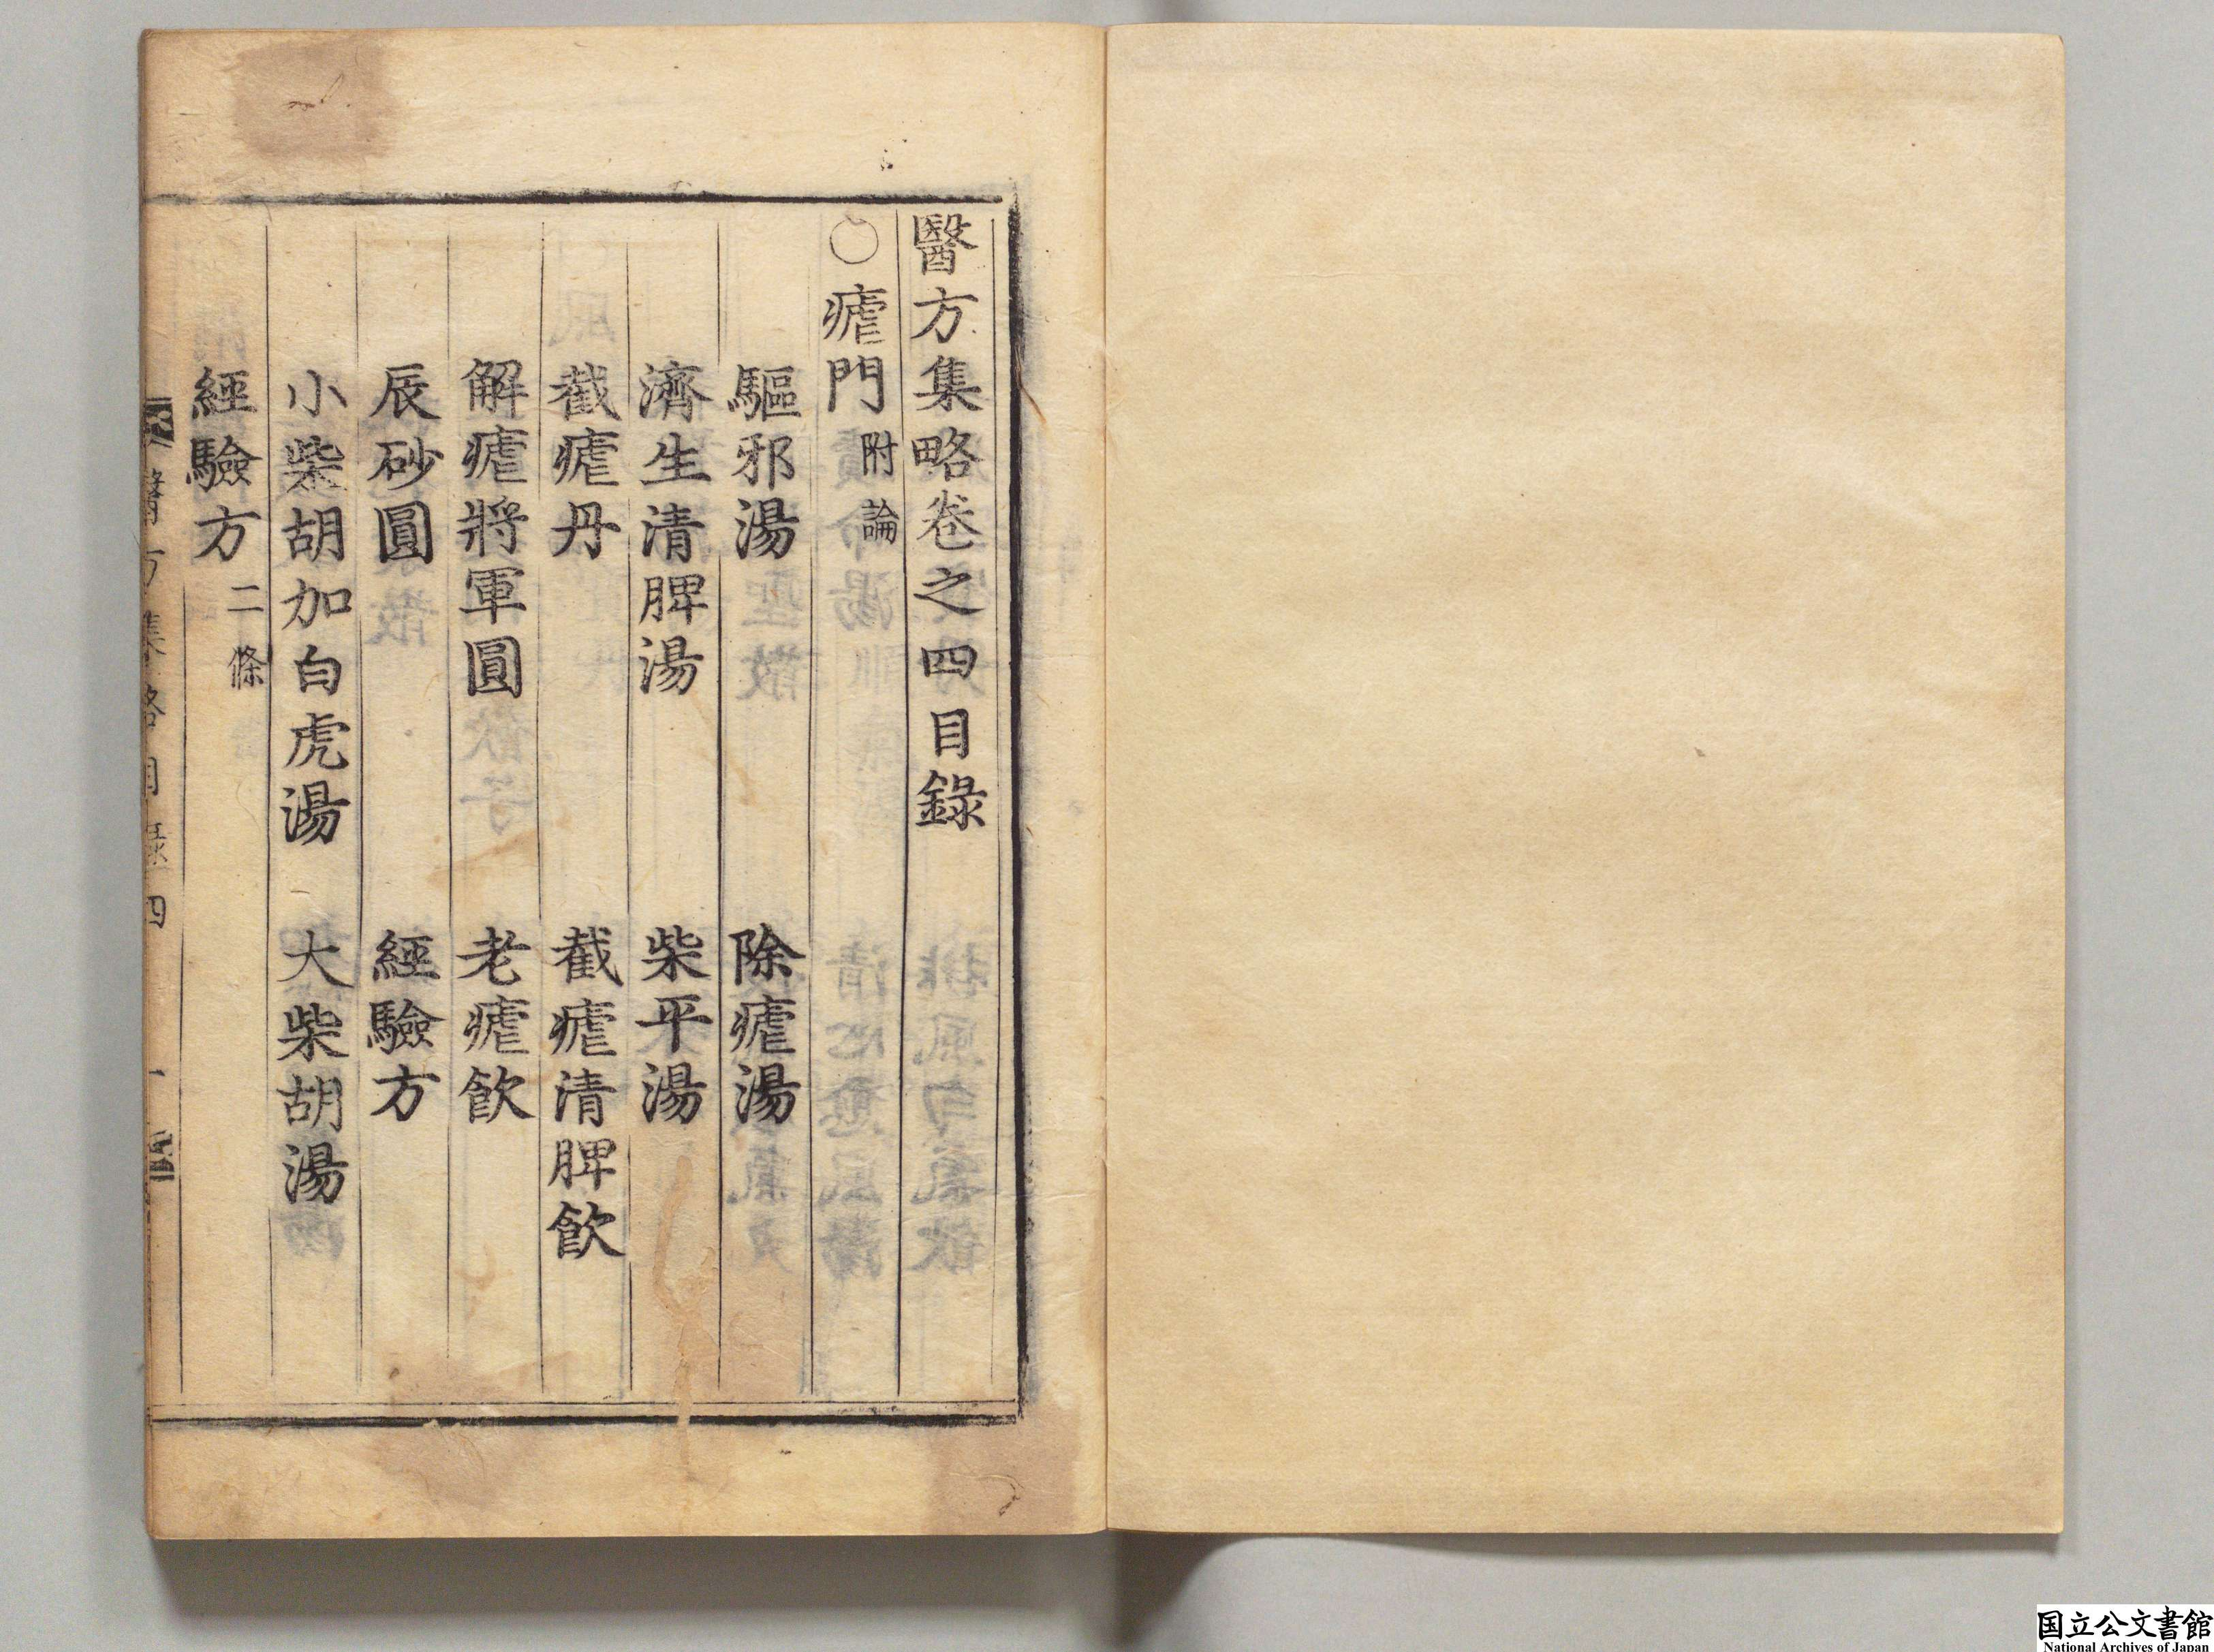 醫方集略卷之四目錄
○瘧門附論
驅邪湯　除瘧湯
濟生清脾湯　柴平湯
截瘧丹　截瘧清脾飲
解瘧將軍圓　老瘧飲
辰砂圓　經驗方
小柴胡加白虎湯　大柴胡湯
經驗方二條
醫方集略目錄四　一
国立公文書館
National Archives of Japan